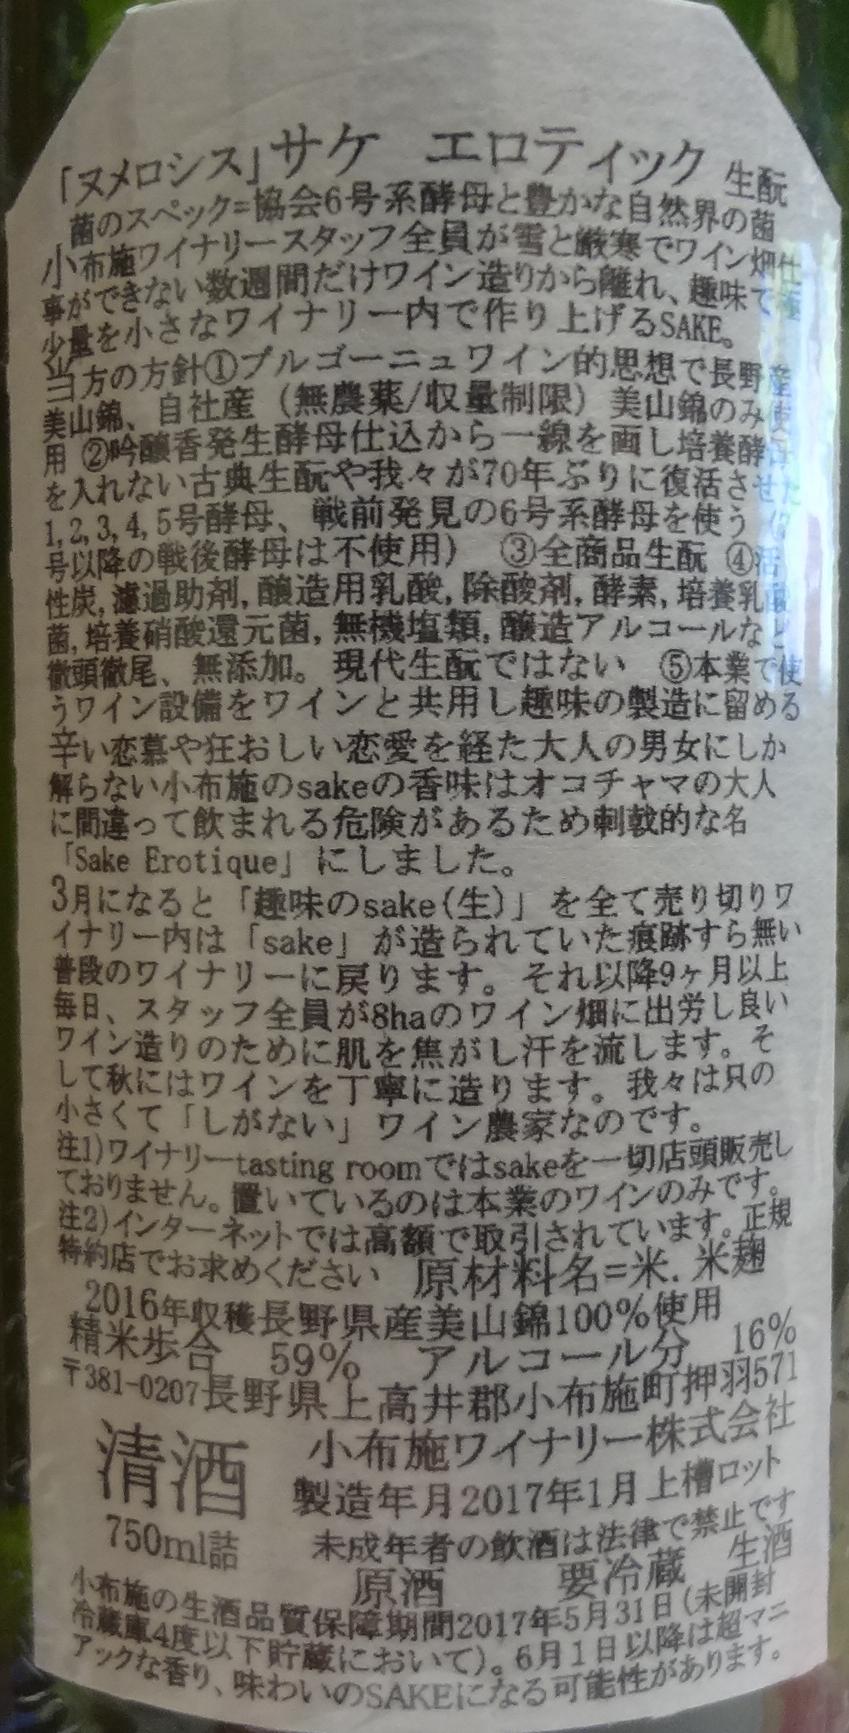 「ヌメロシス」サケ　エロティック　生酛
菌のスペック=協会6号系酵母と豊かな自然界の菌
小布施ワイナリースタッフ全員が雪と厳寒でワイン畑仕
事ができない数週間だけワイン造りから離れ、趣味で極
少量を小さなワイナリー内で作り上げるSAKE。
当方の方針①ブルゴーニュワイン的思想で長野産
美山錦、自社産（無農薬/収量制限）美山錦のみ使
用 ②吟醸香発生酵母仕込から一線を画し培養酵母
を入れない古典生酛や我々が70年ぶりに復活させた
1,2,3,4,5号酵母、戦前発見の6号系酵母を使う（7
号以降の戦後酵母は不使用）　③全商品生酛　④活
性炭,濾過助剤,醸造用乳酸,除酸剤,酵素,培養乳酸
菌,培養硝酸還元菌,無機塩類,醸造アルコールなど
徹頭徹尾、無添加。現代生酛ではない　⑤本業で使
うワイン設備をワインと共用し趣味の製造に留める
辛い恋慕や狂おしい恋愛を経た大人の男女にしか
解らない小布施のsakeの香味はオコチャマの大人
に間違って飲まれる危険があるため刺戟的な名
「Sake Erotique」にしました。
3月になると「趣味のsake(生)」を全て売り切りワ
イナリー内は「sake」が造られていた痕跡すら無い
普段のワイナリーに戻ります。それ以降9ヶ月以上
毎日、スタッフ全員が8haのワイン畑に出労し良い
ワイン造りのために肌を焦がし汗を流します。そ
して秋にはワインを丁寧に造ります。我々は只の
小さくて「しがない」ワイン農家なのです。
注1)ワイナリーtasting roomではsakeを一切店頭販売し
ておりません。置いているのは本業のワインのみです。
注2)インターネットでは高額で取引されています。正規
特約店でお求めください　原材料名=米.米麹
2016年収穫長野県産美山錦100%使用
精米歩合　59%　アルコール分　16%
〒381-0207長野県上高井郡小布施町押羽571
清酒　小布施ワイナリー株式会社
製造年月2017年1月上槽ロット
750ml詰　未成年者の飲酒は法律で禁止です
原酒　要冷蔵　生酒
小布施の生酒品質保障期間2017年5月31日(未開封
冷蔵庫4度以下貯蔵において)。6月1日以降は超マニ
アックな香り、味わいのSAKEになる可能性があります。